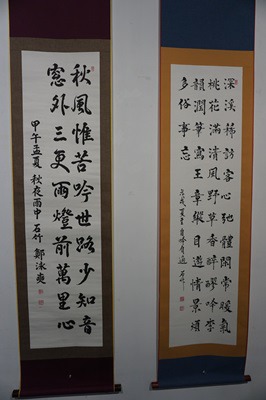 深溪稀訪客心弛體閒常暖氣
桃花滿清風野草香醉醪吟李
韻潤筆寫王章縱目遊情景煩
多俗事忘
石竹
秋風惟苦吟世路少知音
窓外三更雨燈前萬里心
甲午孟夏 秋夜雨中 石竹 鄭泳